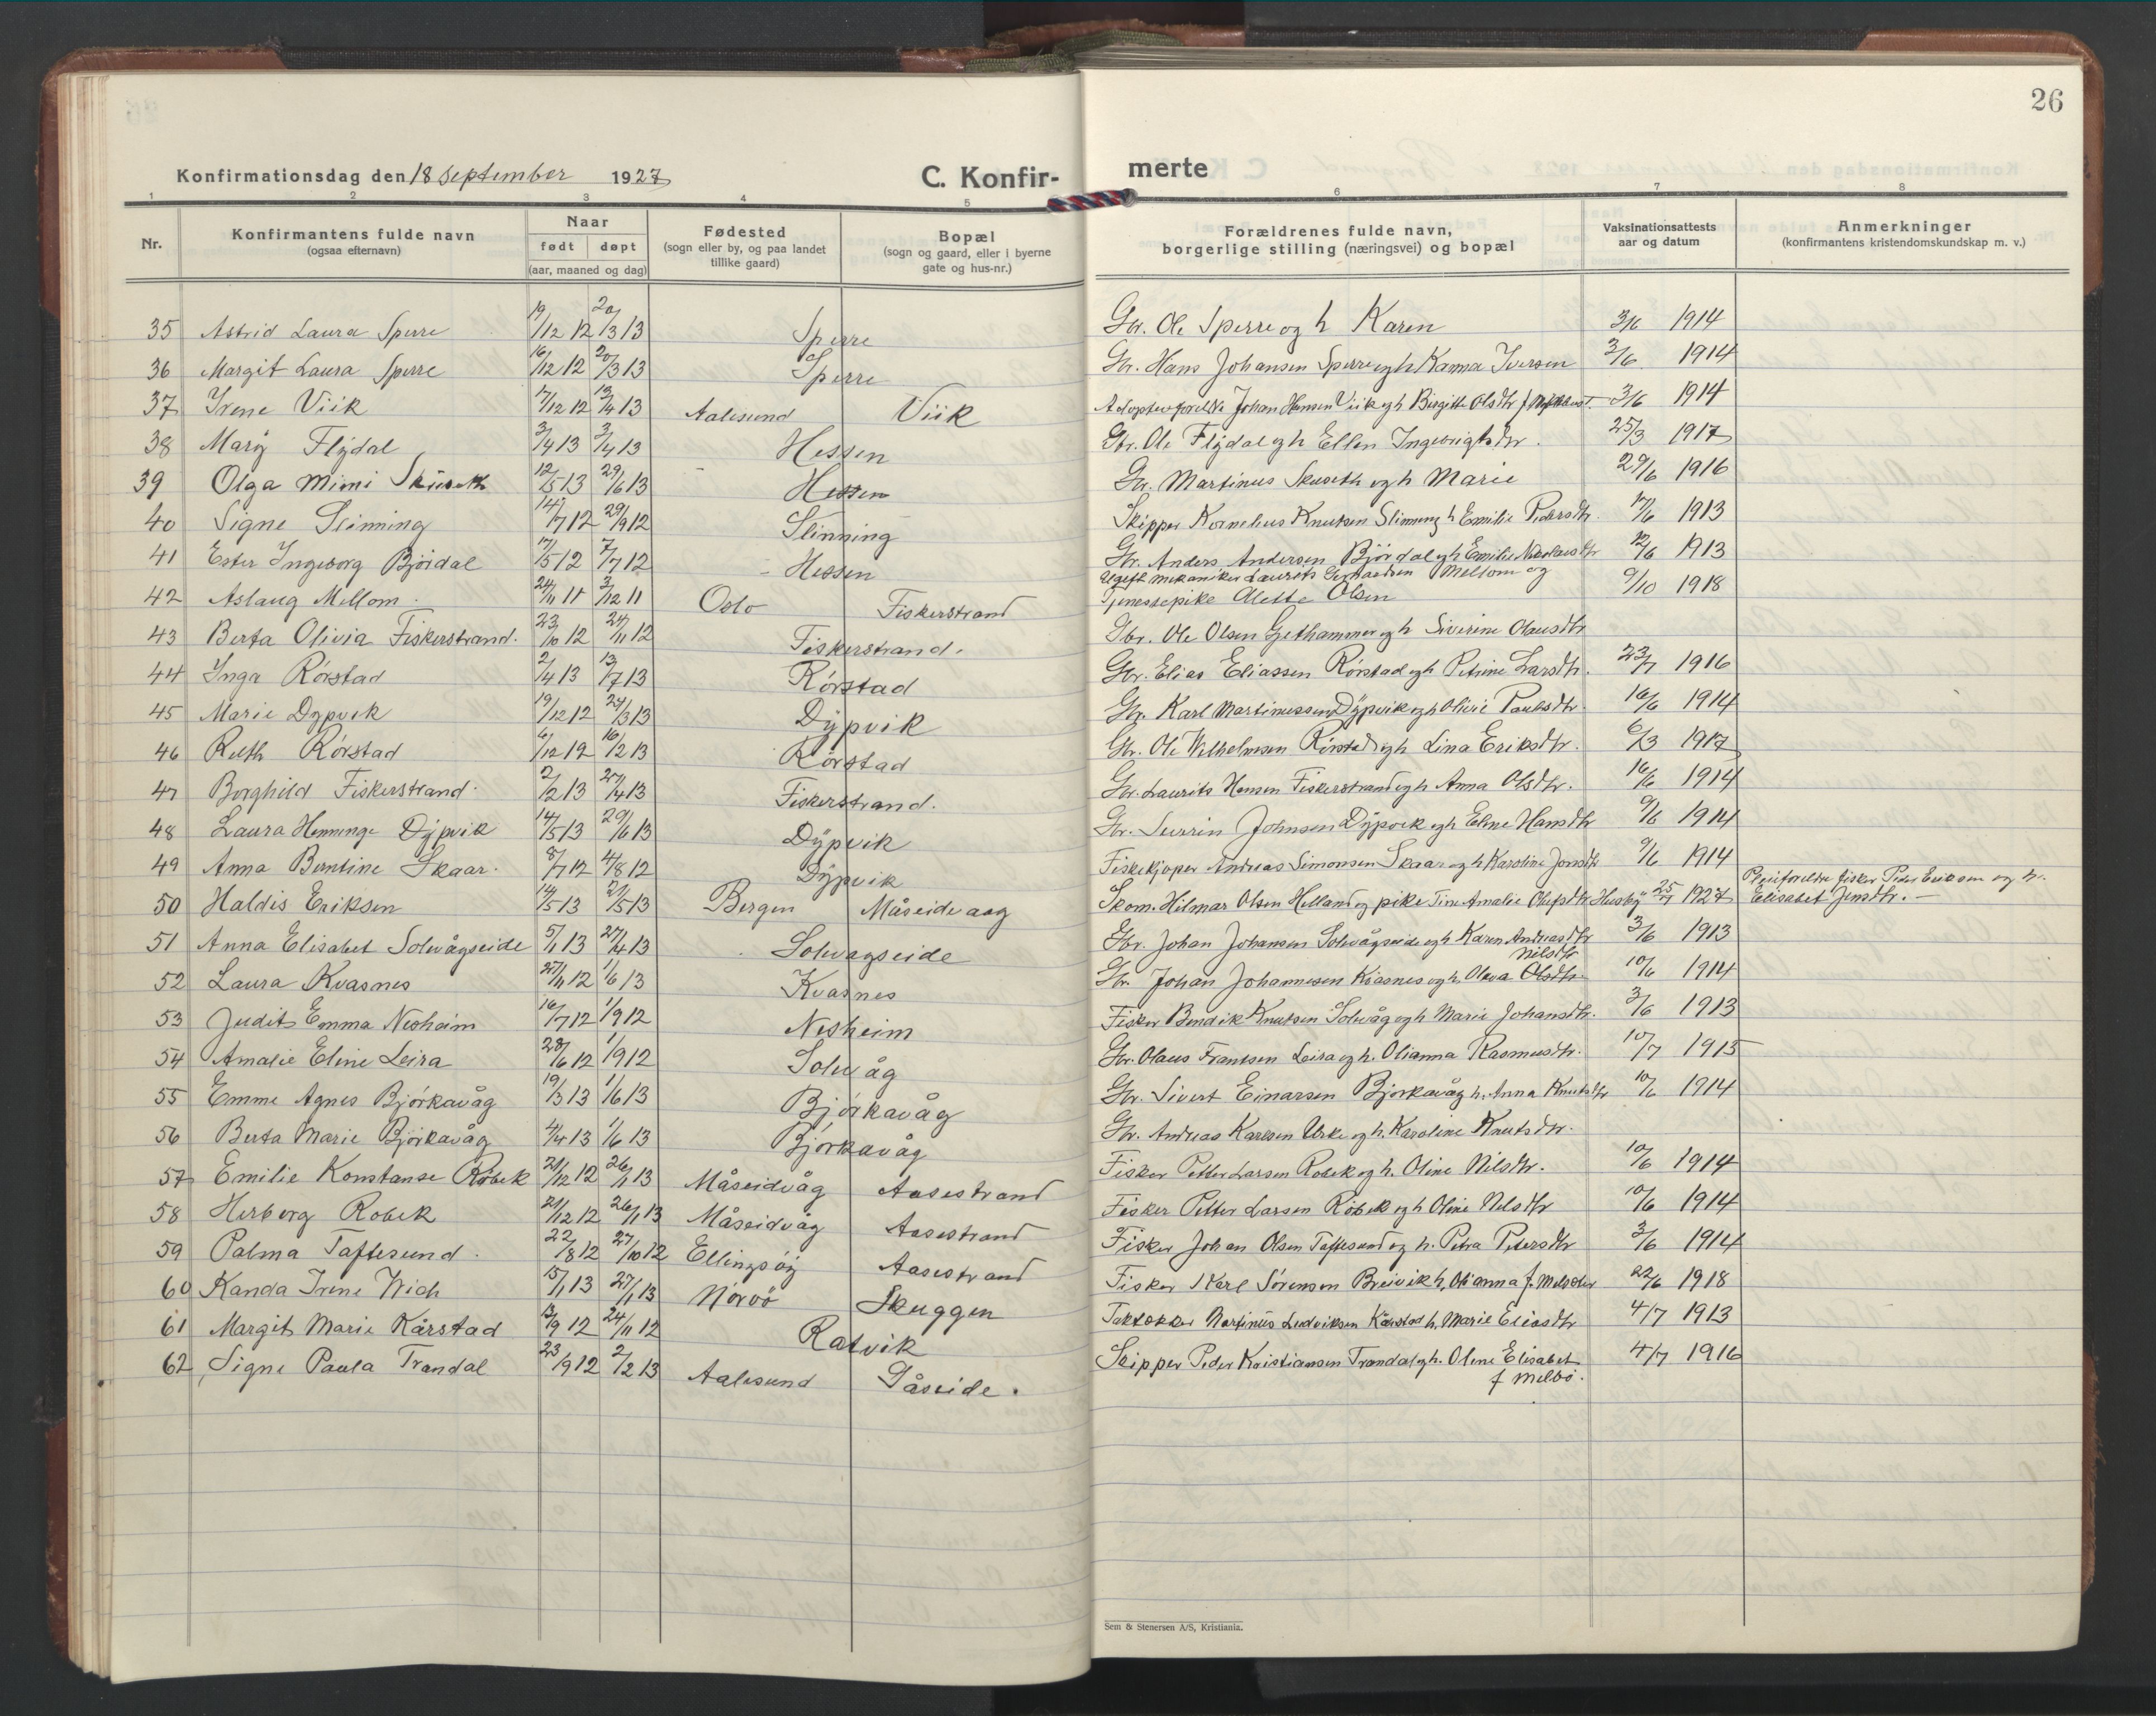 26
Konfirmationsdag den 18 september 1927 C. Konfirmerte
1 2 3 4 5 6 7 8
Nr. Konfirmantens fulde navn (ogsaa efternavn) Naar født døpt (aar, maaned og dag) Fødested (sogn eller by, og paa landet tillike gaard) Bopæl (sogn og gaard, eller i byerne gate og hus-nr.) Forældrenes fulde navn, borgerlige stilling (næringsvei) og bopæl Vaksinationsattests aar og datum Anmerkninger (konfirmantens kristendomskundskap m. v.)
35 Astrid Laura Sperre 19/12 12 20/3 13 Sperre Gbr. Ole Sperre og h Karen 3/6 1914
36 Margit Laura Sperre 16/12 12 20/3 13 Sperre Gbr. Hans Johansen Sperre og h Kanna Iversen 3/6 1914
37 Irene Viik 17/12 12 13/4 13 Aalesund Viik Adoptivforeldre Johan Hansen Viik og h Birgitte Olsdtr 3/6 1914
38 Marÿ Flÿdal 3/4 13 Hessen Gbr. Ole Flÿdal og h Ellen Ingebrigtsdtr. 25/3 1917
39 Olga Mimi Skuseth 12/5 13 29/6 13 Hessen Gbr. Martinus Skuseth og h Marie 29/6 1916
40 Signe Slinning 14/7 12 29/9 12 Slinning Skipper Kornelius Knutsen Slinning h Emilie Pedersdtr. 17/6 1913
41 Ester Ingeborg Bjørdal 17/5 12 7/7 12 Hessen Gbr. Anders Andersen Bjørdal og h Emilie Nikolausdtr 12/6 1913
42 Aslaug Mellom 24/11 11 3/12 11 Oslo Fiskerstrand Ugift mekaniker Laurits Gerhardsen Mellom og Tjenestepike Alette Olsen 9/10 1918
43 Berta Olivia Fiskerstrand. 23/10 12 24/11 12 Fiskerstrand. Gbr. Ole Olsen Gethammer og h Siverine Olausdtr
44 Inga Rørstad 2/4 13 13/7 13 Rørstad Gbr. Elias Eliassen Rørstad og h Petrine Larsdtr. 23/7 1916
45 Marie Dypvik 19/12 12 24/3 13 Dÿpvik Gbr. Karl Martinussen Dÿpvik og h Olivie Paulsdtr 16/6 1914
46 Ruth Rørstad 6/12 12 16/2 13 Rørstad Gbr. Ole Wilhelmsen Rørstad og h Lina Eriksdtr. 6/3 1917
47 Borghild Fiskerstrand 2/2 13 27/4 13 Fiskerstrand. Gbr. Laurits Hansen Fiskerstrand og h Anna Olsdtr. 16/6 1914
48 Laura Henninge Dÿpvik 14/5 13 29/6 13 Dÿpvik Gbr. Severin Johnsen Dÿpvik og h Eline Hansdtr 9/6 1914
49 Anna Berntine Skaar. 8/7 12 4/8 12 Dÿpvik Fiskekjøper Andreas Simonsen Skaar og h Karoline Jonsdtr 9/6 1914
50 Haldis Eriksen 14/5 13 21/5 13 Bergen Måseidvaag Skom. Hilmar Olsen Helland og pike Tine Amalie Olufsdtr Husby 25/7 1927 Pleieforeldre fisker Peder Eriksen og h. Elisabet Jensdtr.
51 Anna Elisabet Solevågseide 5/1 13 27/4 13 Solevagseide Gbr. Johan Johansen Solevågseide og h Karen Andreasdtr 3/6 1913
52 Laura Kvasnes 27/11 12 1/6 13 Kvasnes Gbr. Johan Johannesen Kvasnes og h. Olava Olsdtr Nilsdtr 10/6 1914
53 Judit Emma Nesheim 16/7 12 1/9 12 Nesheim Fisker Bendik Knutsen Solevåg og h Marie Johansdtr. 3/6 1913
54 Amalie Eline Leira 28/6 12 1/9 12 Solevåg Gbr. Olaus Frantsen Leira og h. Olianna Rasmusdtr. 10/7 1915
55 Emme Agnes Bjørkavåg 19/3 13 1/6 13 Bjørkavåg Gbr. Sivert Einarsen Bjørkavåg h. Anna Knutsdtr 10/6 1914
56 Berta Marie Bjørkavåg 4/4 13 1/6 13 Bjørkavåg Gbr. Andreas Karlsen Urke og h. Karoline Knutsdtr.
57 Emilie Konstanse Robek 21/12 12 26/1 13 Måseidvåg Aasestrand Fisker Petter Larsen Robek og h. Oline Nilsdtr. 10/6 1914
58 Herborg Robek 21/12 12 26/1 13 Måseidvåg Aasestrand Fisker Petter Larsen Robek og h Oline Nilsdtr 10/6 1914
59 Palma Taftesund. 22/8 12 27/10 12 Ellingsøy Aasestrand Fisker Johan Olsen Taftesund og h. Petra Petersdtr 3/6 1914
60 Kanda Irene Wich 15/1 13 27/1 13 Nørvø Skuggen Fisker Karl Sørensen Breivik h. Olianna f. 22/6 1918
61 Margit Marie Kårstad 13/9 12 24/11 12 Ratvik Taktekker Martinus Ludviksen Kårstad h. Marie Eliasdtr 4/7 1913
62 Signe Paula Trandal 23/9 12 2/2 13 Aalesund Gåseide. Skipper Peder Kristiansen Trandal og h. Oline Elisabet f Melbø. 4/7 1916
Sem & Stenersen A/S, Kristiania.